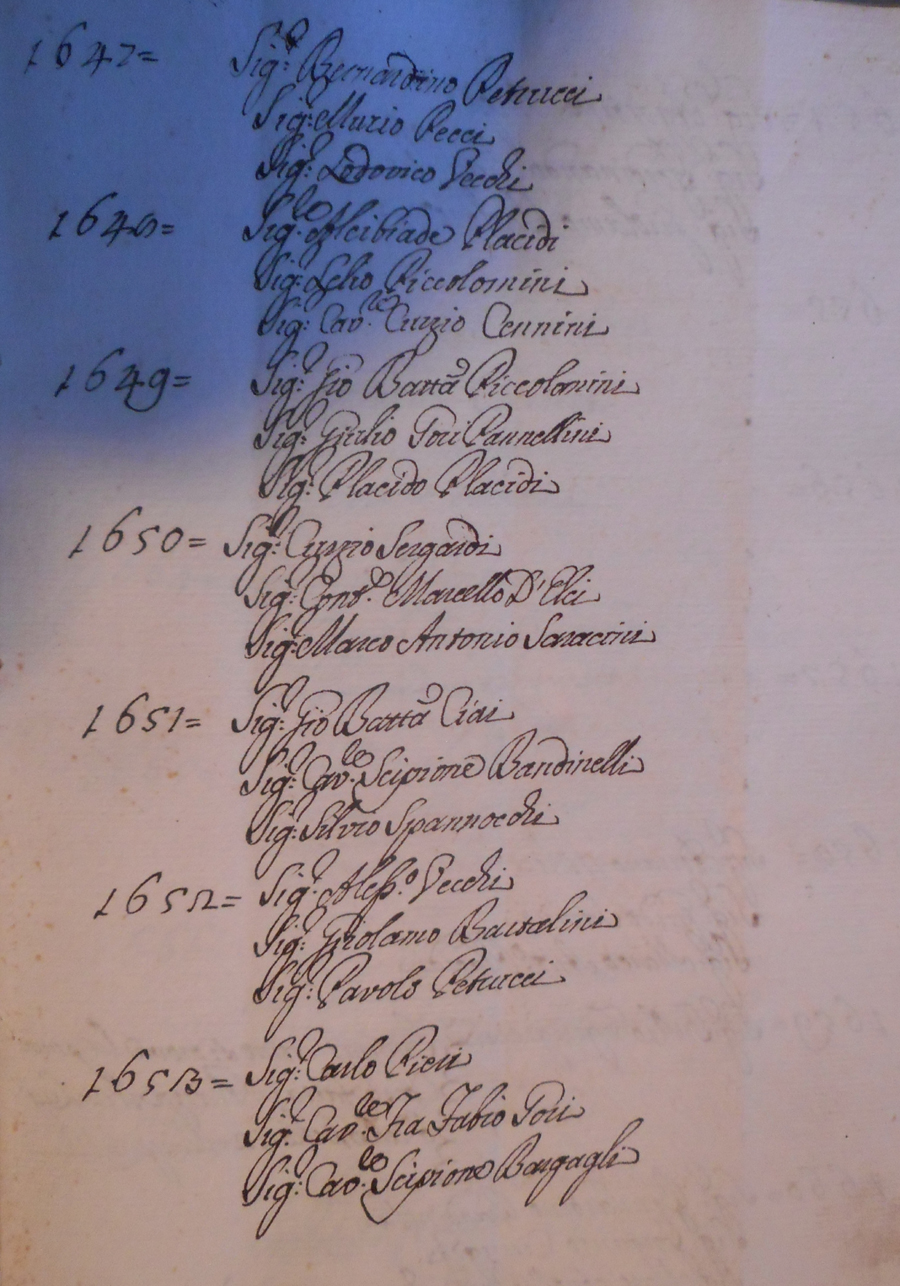 1647= Sig.r Bernardino Petrucci
Sig.r Muzio Pecci
Sig.r Lodovico Vecchi
1648= Sig.r Alcibiade Placidi
Sig.r Lelio Piccolomini
Sig.r Cav.re Curzio Cennini
1649= Sig.r Gio Batta Piccolomini
Sig.r Giulio Tori Pannellini
Sig.r Placido Placidi
1650= Sig.r Curzio Sergardi
Sig.r Cont.e Marcello D'Elci
Sig.r Marco Antonio Saracini
1651= Sig.r Gio Batta Ciai
Sig.r Cav.re Scipione Bandinelli
Sig.r Silvio Spannocchi
1652= Sig.r Aless.o Vecchi
Sig.r Girolamo Bartalini
Sig.r Pavolo Petrucci
1653= Sig.r Carlo Pieri
Sig.r Cav.re Fra Fabio Tori
Sig.r Cav.re Scipione Bargagli